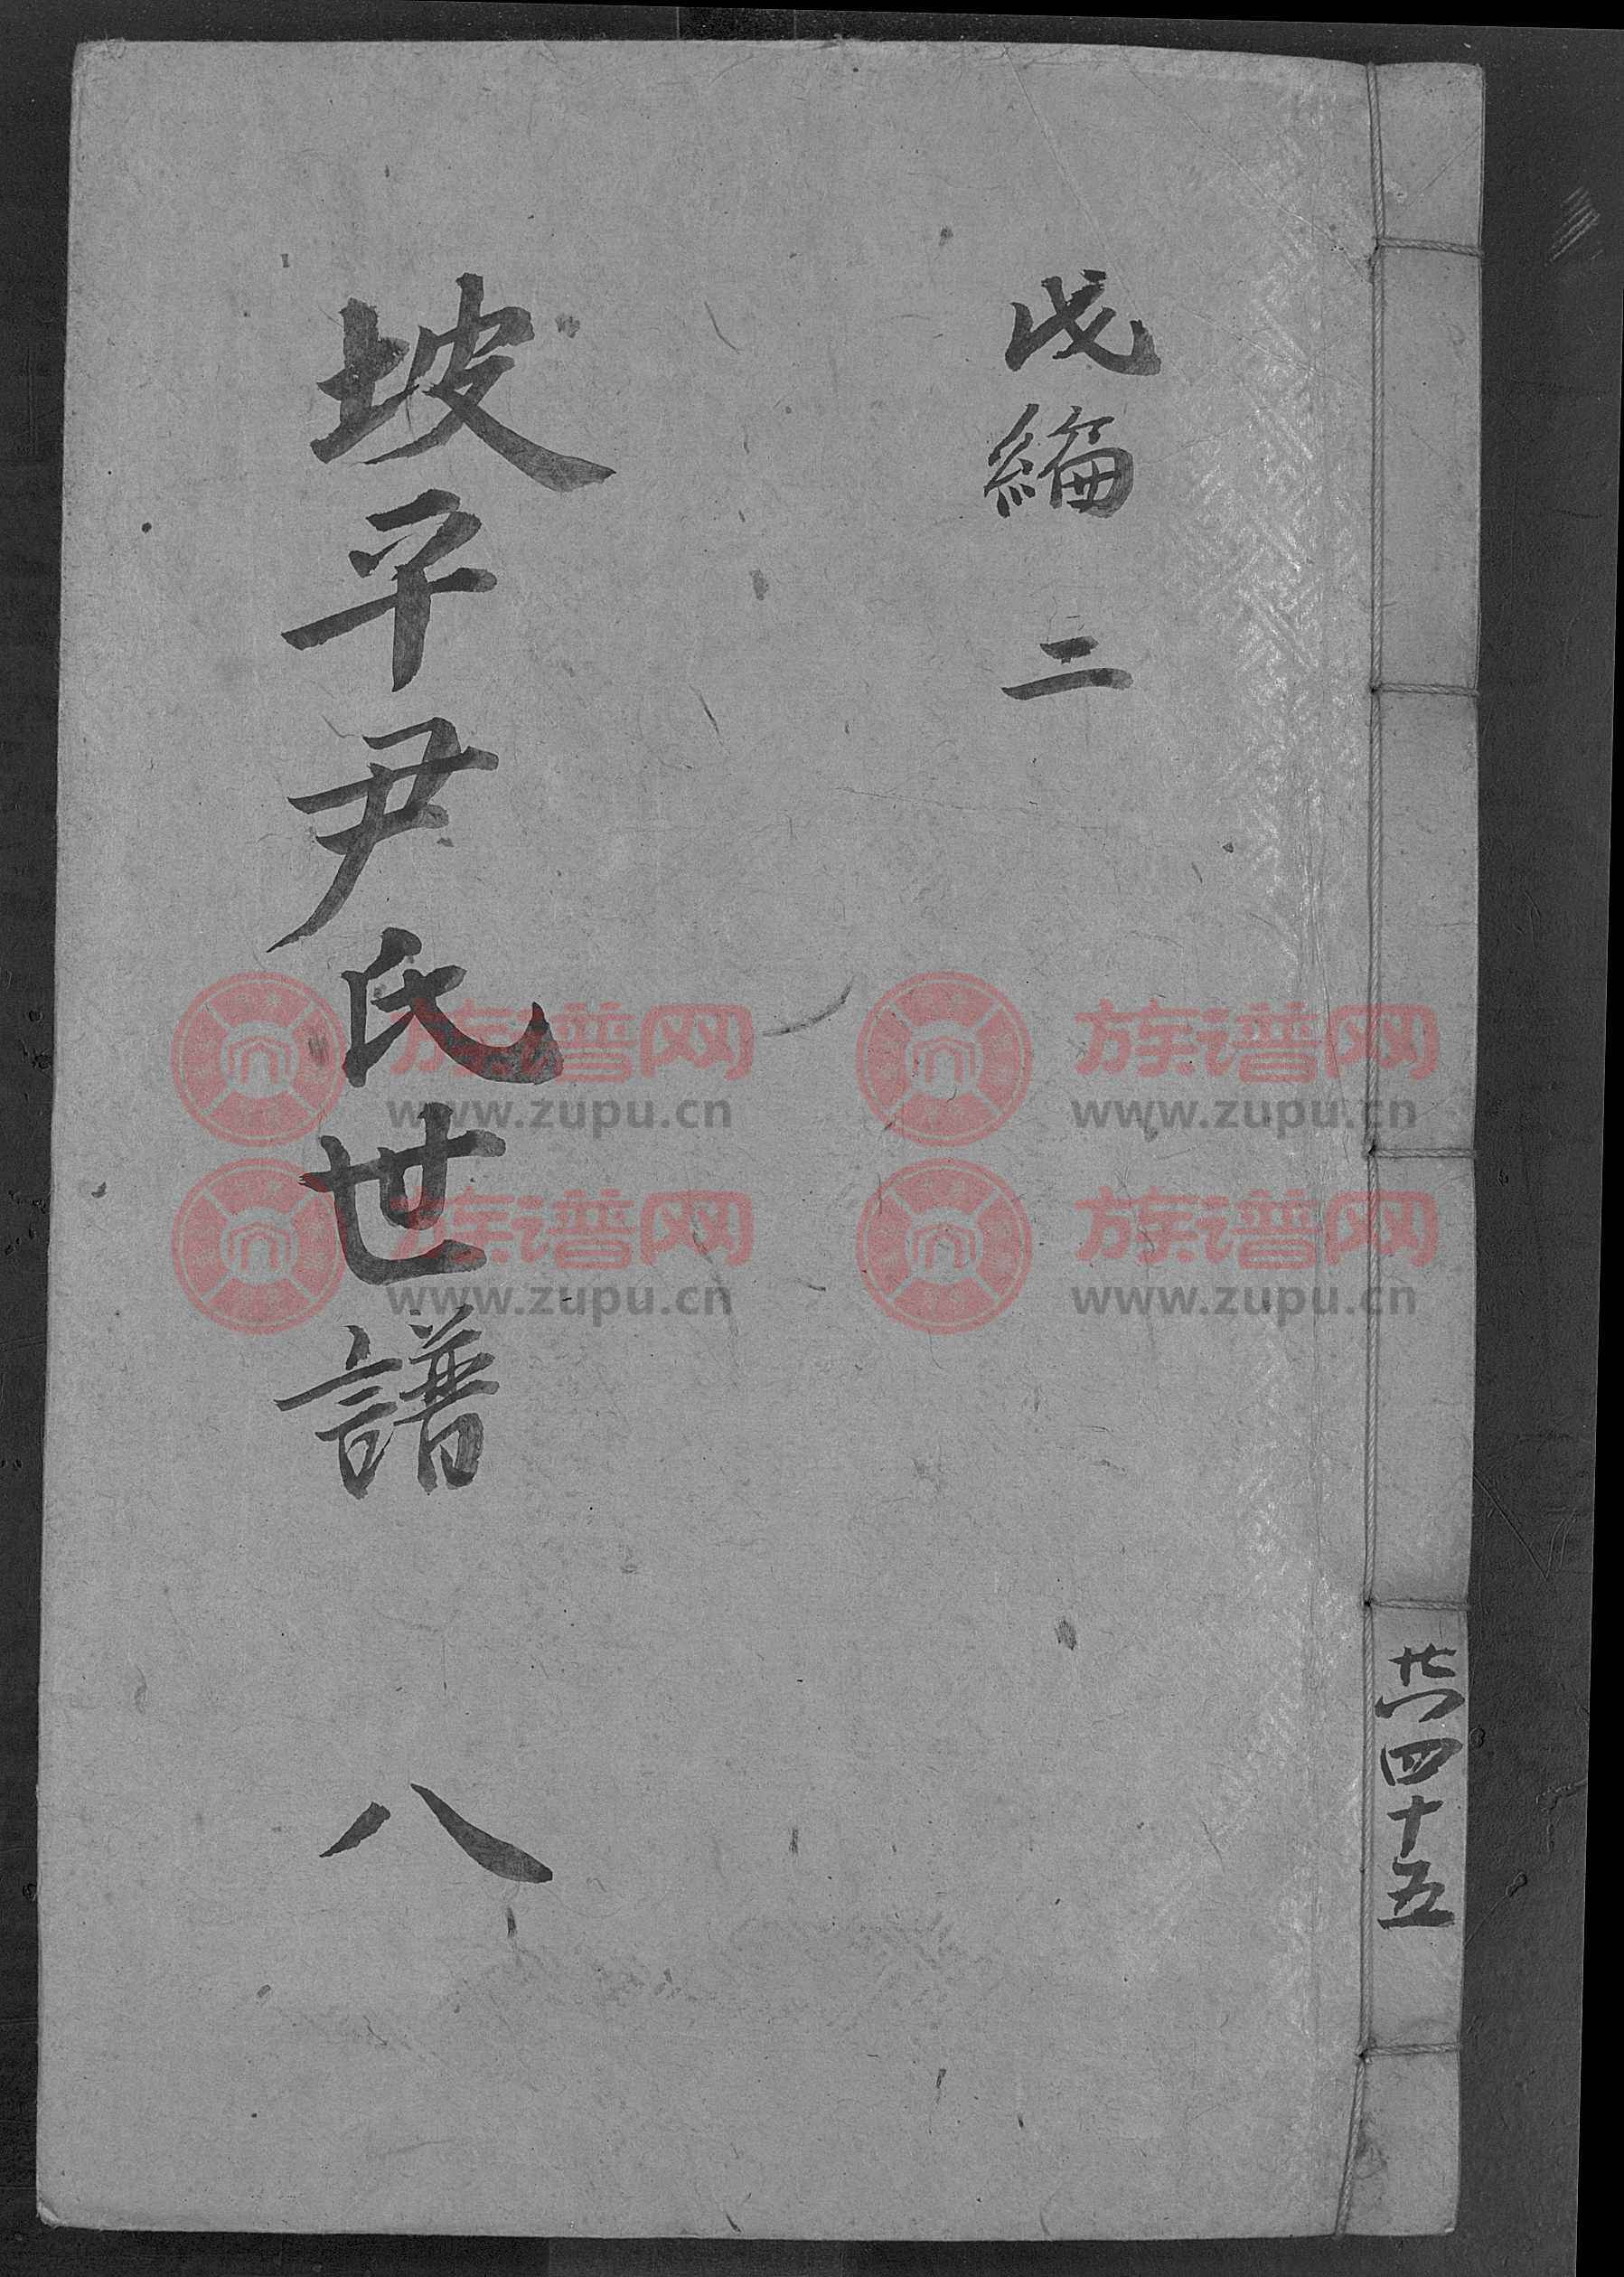 編 二
坡平尹氏世譜 八
共四十五
族谱网
www.zupu.cn
族谱网
www.zupu.cn
族谱网
www.zupu.cn
族谱网
www.zupu.cn